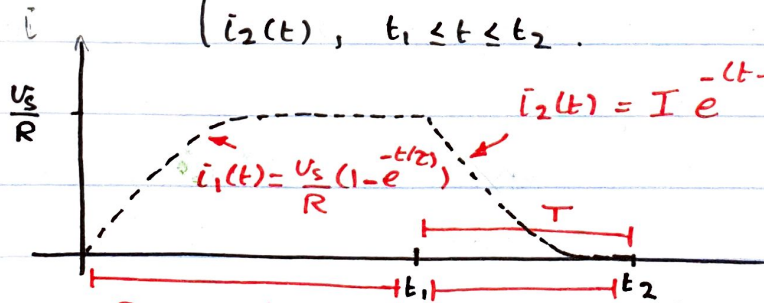 i
i₂(t) , t₁ ≤ t ≤ t₂ .
Vs/R
i₂(t) = I e^-(t-
i₁(t) = Vs/R (1-e^-t/τ)
T
t₁
t₂